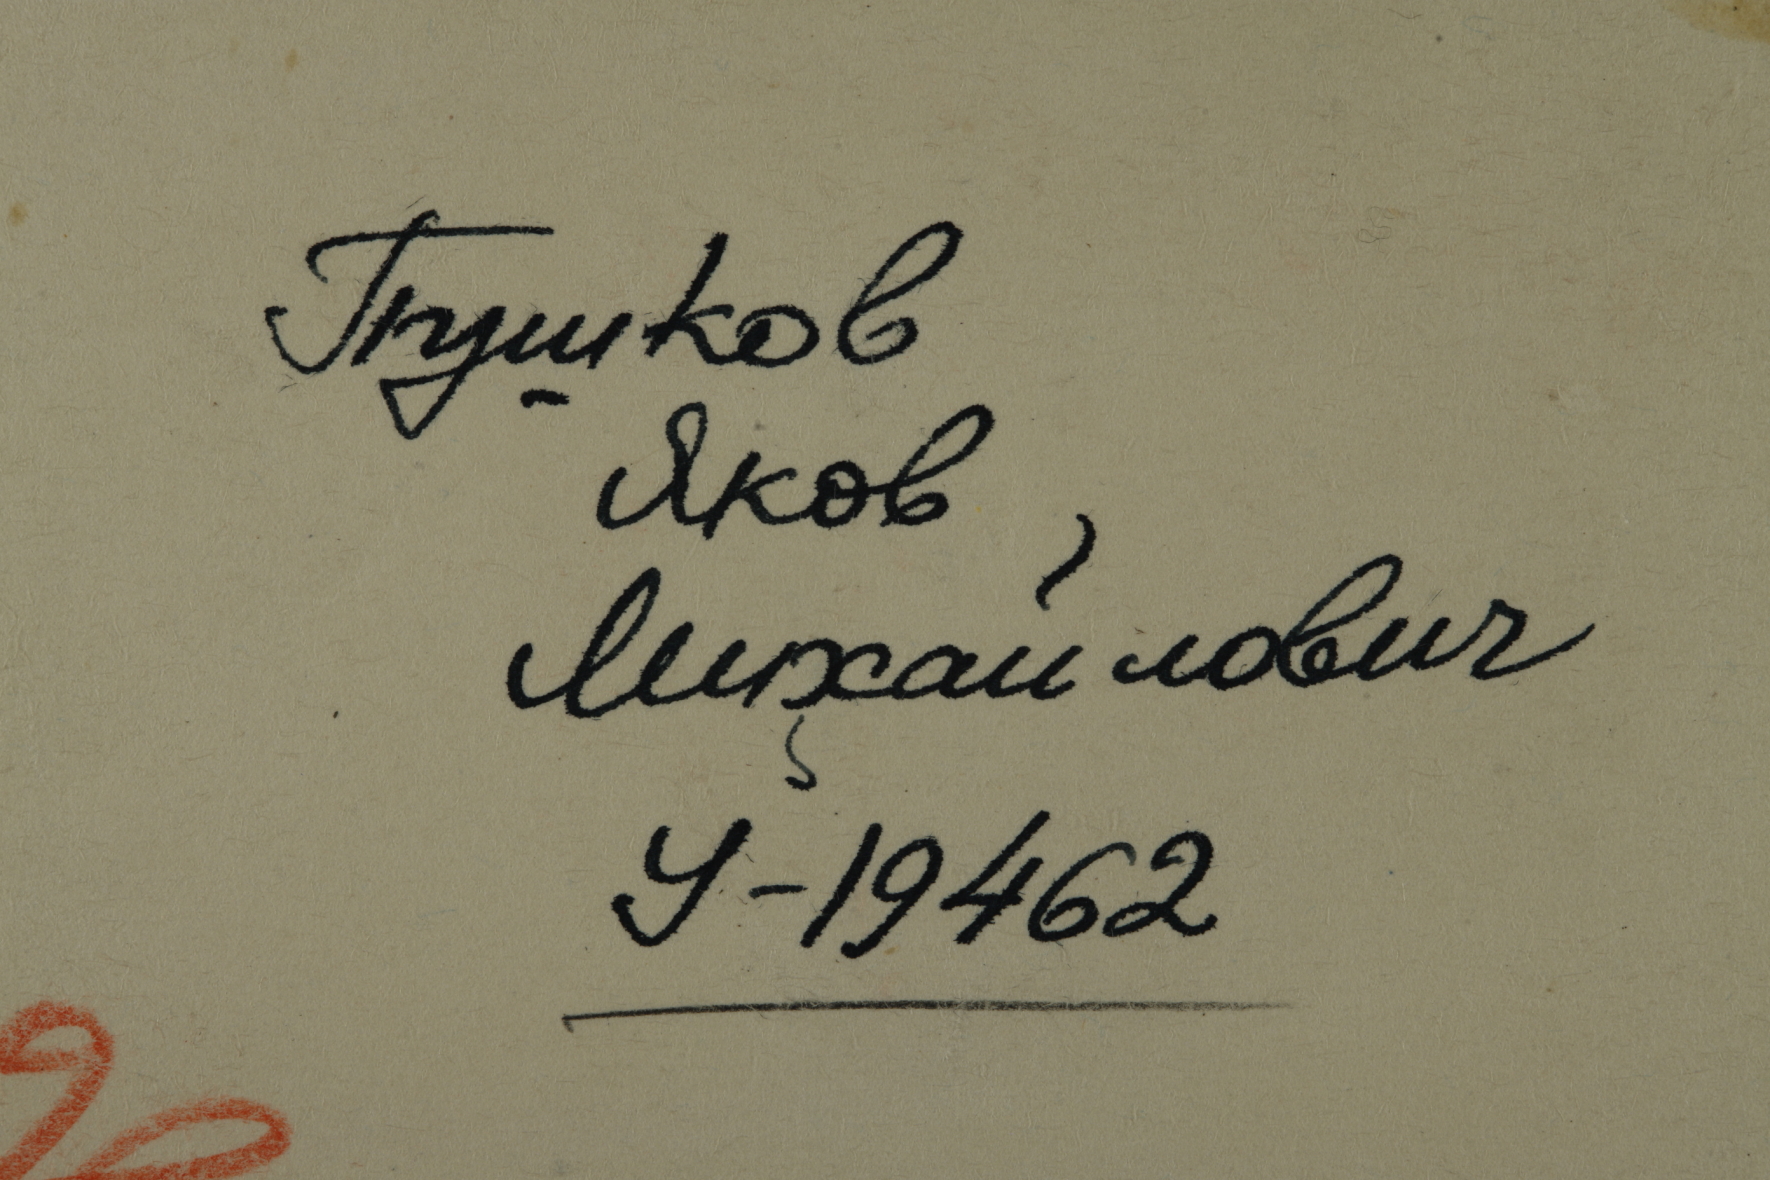 Пушков
Яков
Михайлович
У-19462